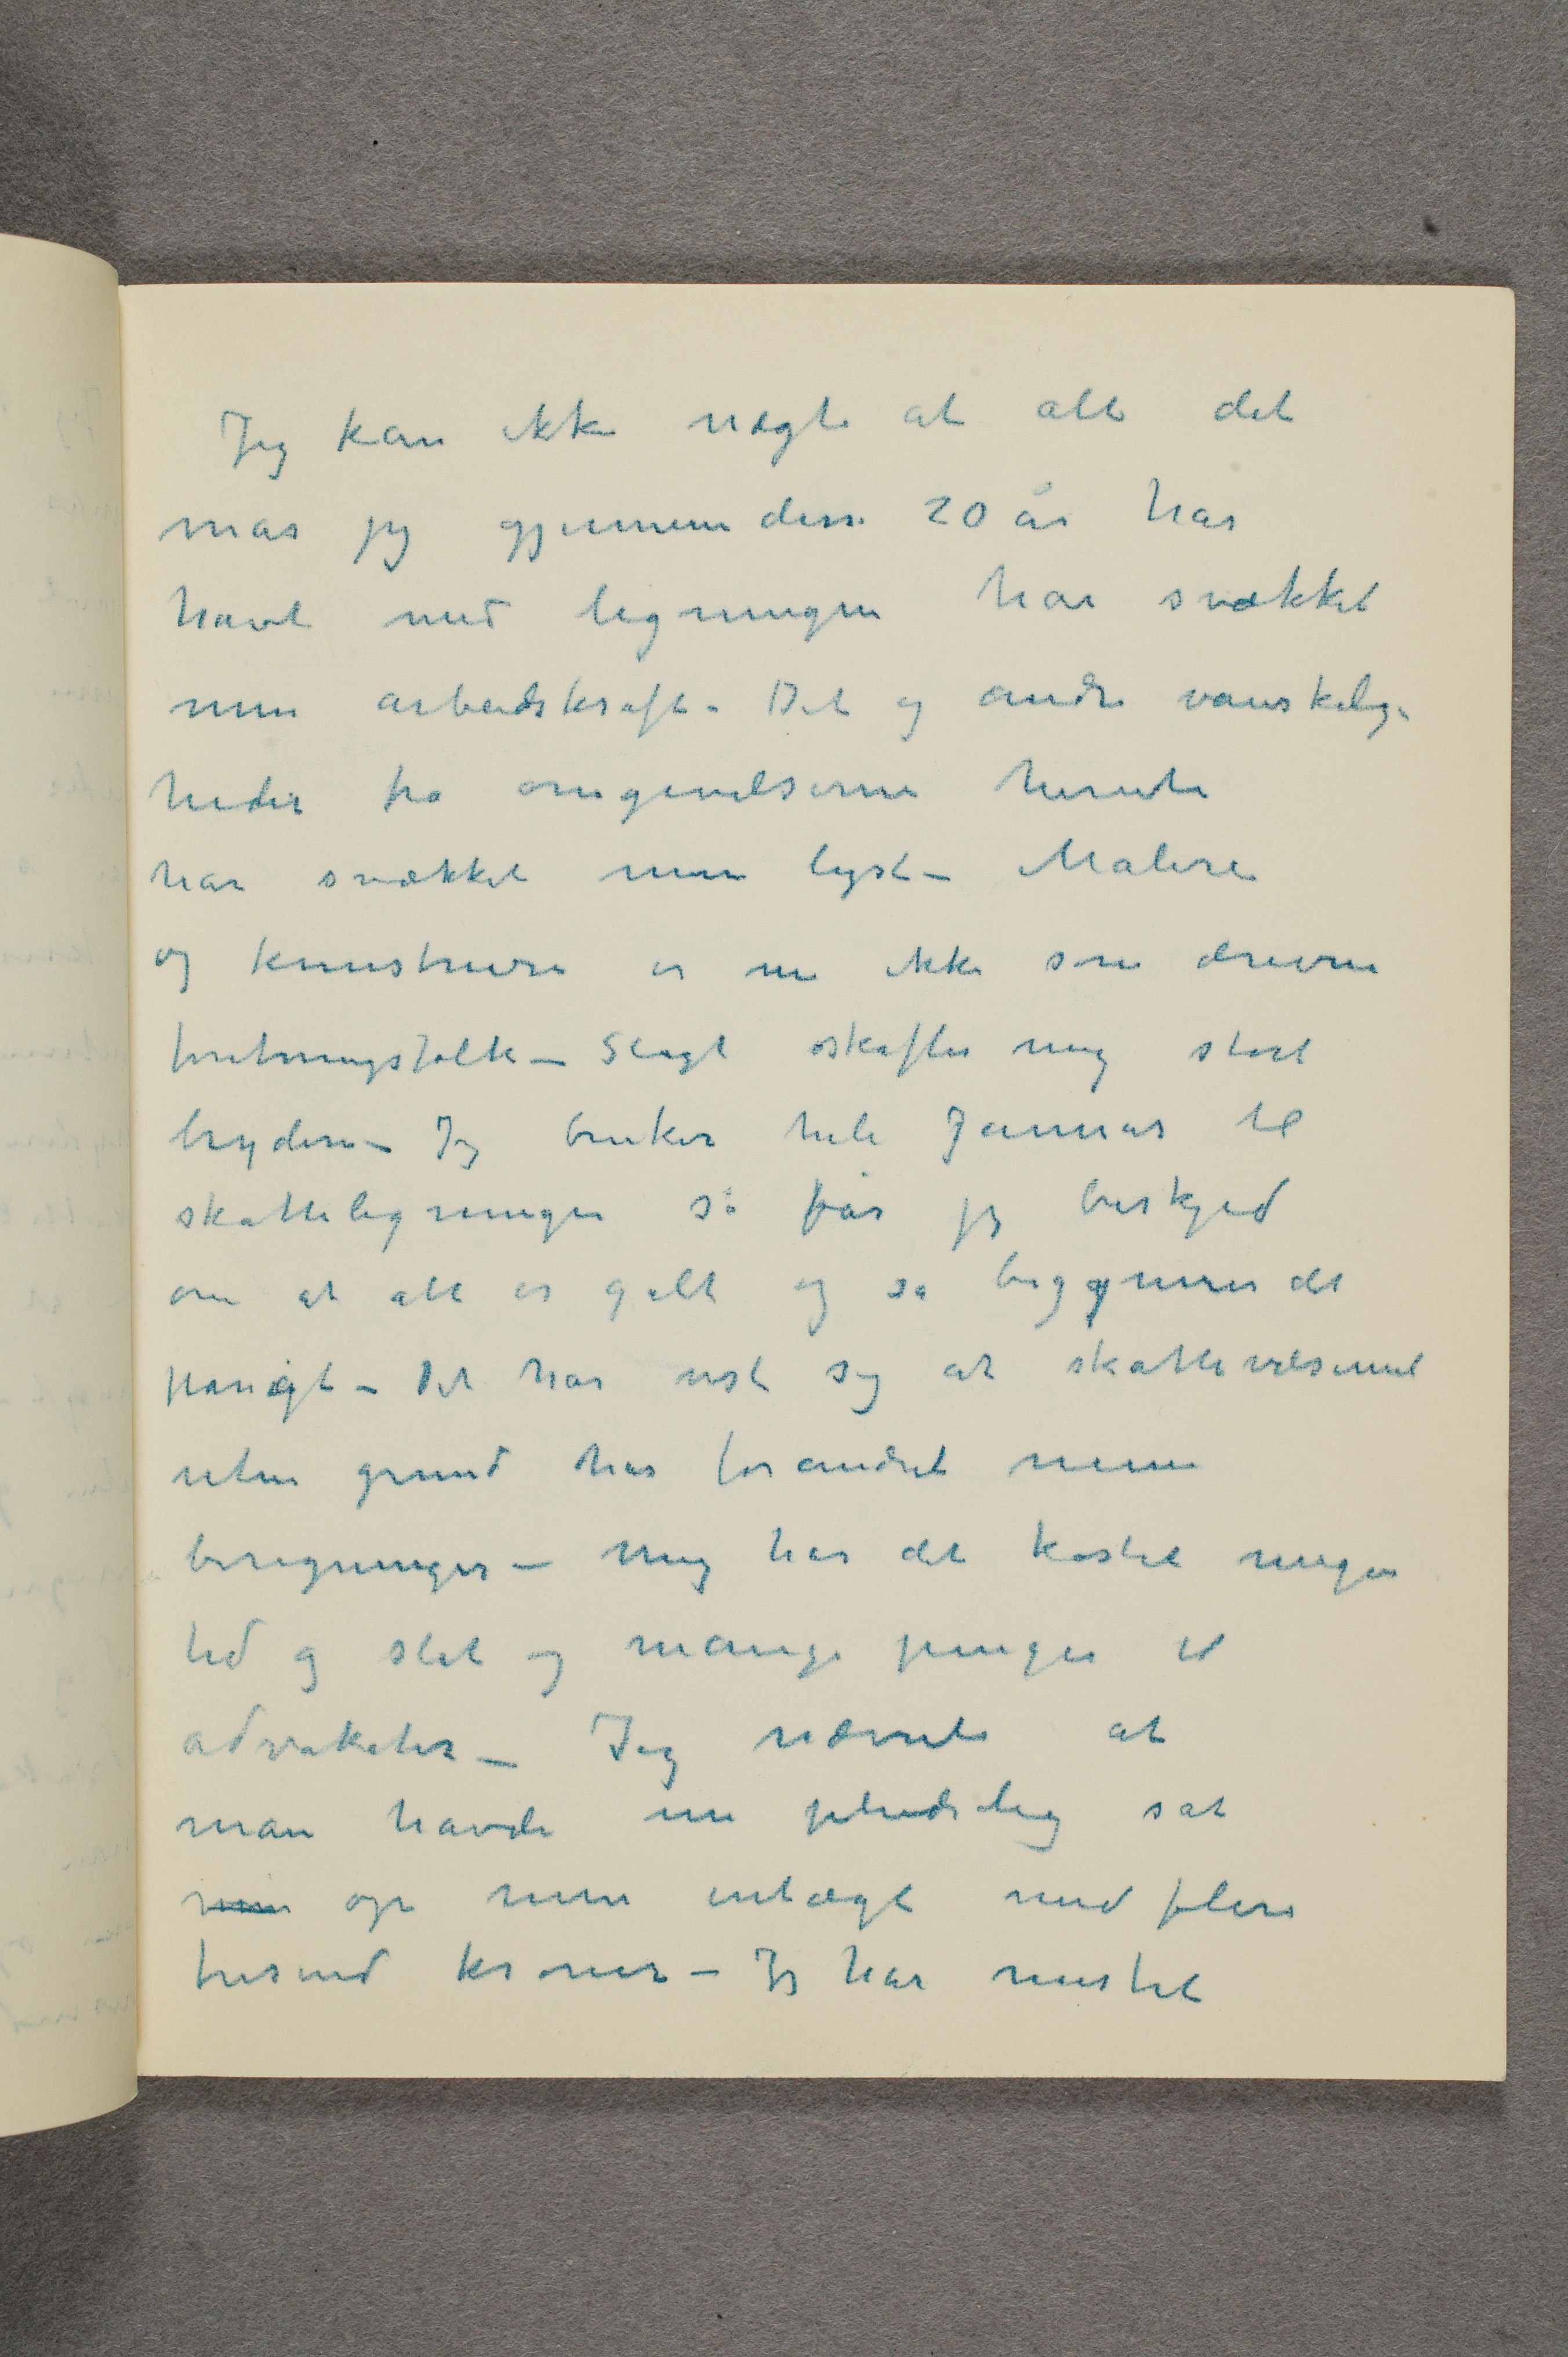 Jeg kan ikke nægte at alt det
mas jeg gjennem disse 20 år har
havt med ligningen har svækket
min arbeidskraft – Det og andre vanskelig-
heder fra omgivelserne herute
har svækket min lyst – Malere
og kunstnere er nu ikke som drevne
forretningsfolk – Sligt skaffer mig stort
bryderi – Jeg bruker hele Januar til
skatteligningen så får jeg beskjed
om at alt er galt og så begynner det
påny igjen – Det har vist sig at skattevæsenet
uten grund har forandret mine
beregninger – Mig har det kostet megen
tid og slit og mange penger til
advokater – Jeg nævnte at
man havde nu pludselig sat
min op min intægt med flere
tusind kroner – Jeg har mistet